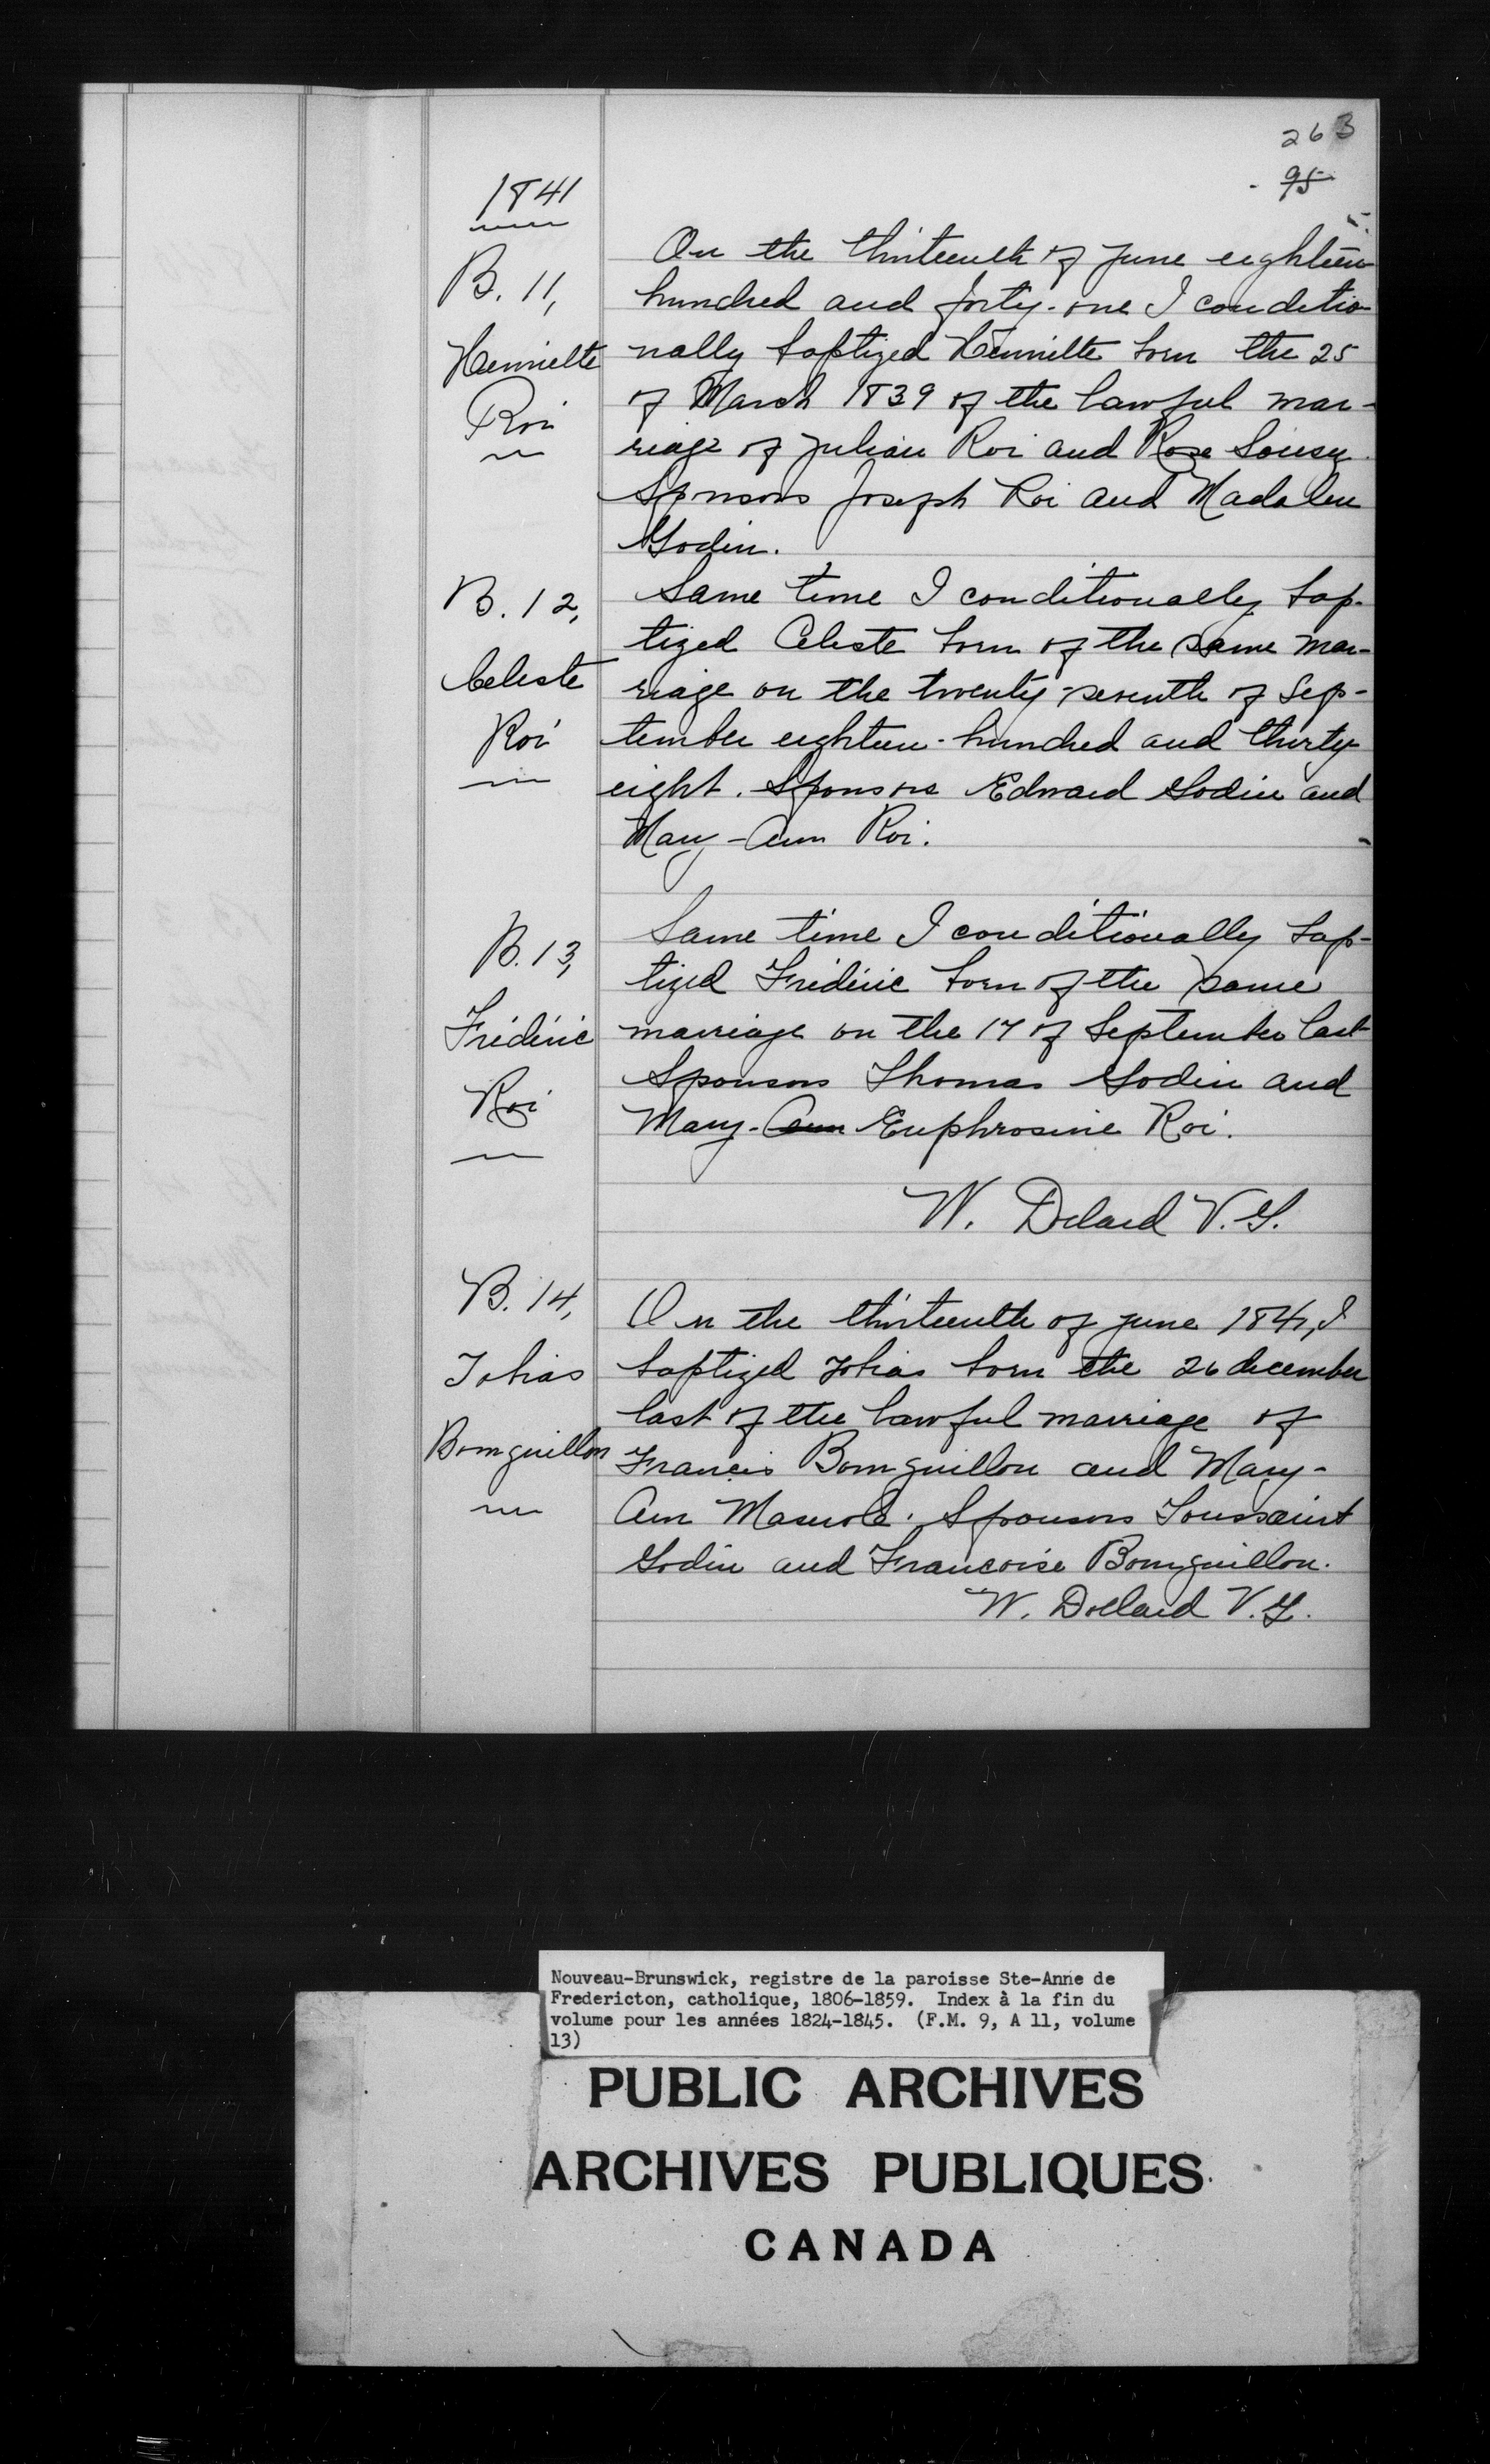 263
95
1841
B. 11,
Henriette
Roi
On the thirteenth of june eighteen
hundred and forty-one I conditio-
nally baptized Henriette born the 25
of March 1839 of the lawful mar-
riage of julian Roi and Rose
Sponsors Joseph Roi and Madalen
Godin.
B. 12,
Celeste
Roi
Same time I conditionally bap-
tized Celeste born of the same mar-
riage on the twenty-seventh of Sep-
tember eighteen-hundred and thirty
eight. Sponsors Edward Godin and
Mary-Ann Roi.
B. 13,
Fréderic
Roi
Same time I conditionally bap-
tized Fréderic born of the same
marriage on the 17 of September last
Sponsors Thomas Godin and
Mary-Ann Euphrosine Roi.
W. Dolard V.G.
B. 14,
Tobias
Bourguillon
On the thirteenth of june 1841, I
baptized Tobias born the 26 december
last of the lawful marriage of
Francis Bourguillon and Mary-
Ann Sponsors Toussaint
Godin and Francoise Bourguillon.
W. Dollard V.G.
Nouveau-Brunswick, registre de la paroisse Ste-Anne de
Fredericton, catholique, 1806-1859. Index à la fin du
volume pour les années 1824-1845. (F.M. 9, A 11, volume
13)
PUBLIC ARCHIVES
ARCHIVES PUBLIQUES
CANADA